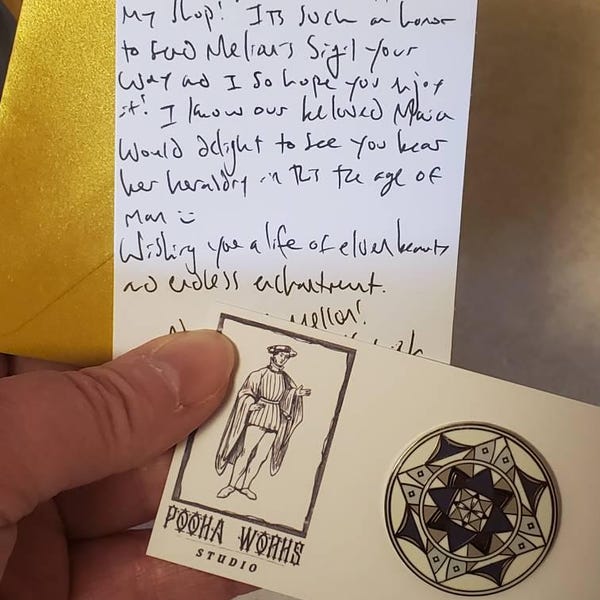 My shop! Its such an honor
to send Melian's Sigil your
way and I so hope you enjoy
it! I know our beloved Maia
would delight to see you bear
her heraldry in this the age of
Man
Wishing you a life of elven beauty
and endless enchantment.
Mellon!
POOKA WORKS
STUDIO